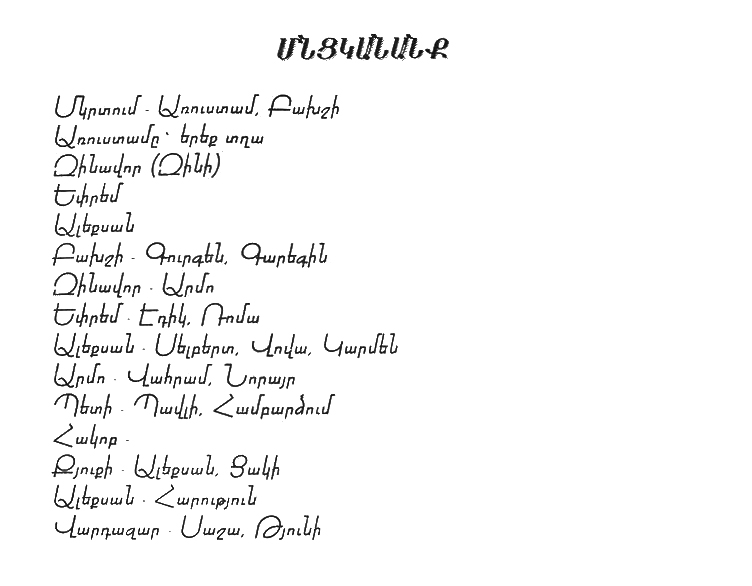 ՄՆՅԿԱՆԱՆՔ
Մկրտում - Առուստամ, Բախշի
Առուստամը՝ երեք տղա
Զինավոր (Զինի)
Եփրեմ
Ալեքսան
Բախշի - Գուրգեն, Գարեգին
Զինավոր - Արմո
Եփրեմ - Էդիկ, Ռոմա
Ալեքսան - Սելբերտ, Վովա, Կարմեն
Արմո - Վահրամ, Նորայր
Պետի - Պավլի, Համբարձում
Հակոբ -
Քյուքի - Ալեքսան, Ցակի
Ալեքսան - Հարություն
Վարդազար - Սաշա, Թյունի